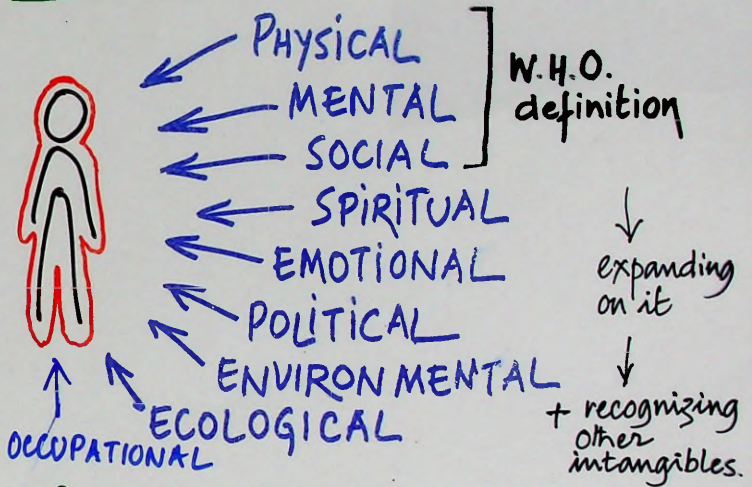 PHYSICAL
MENTAL
SOCIAL
W.H.O.
definition
SPIRITUAL
EMOTIONAL
POLITICAL
ENVIRONMENTAL
ECOLOGICAL
OCCUPATIONAL
expanding
on it
+ recognizing
other
intangibles.